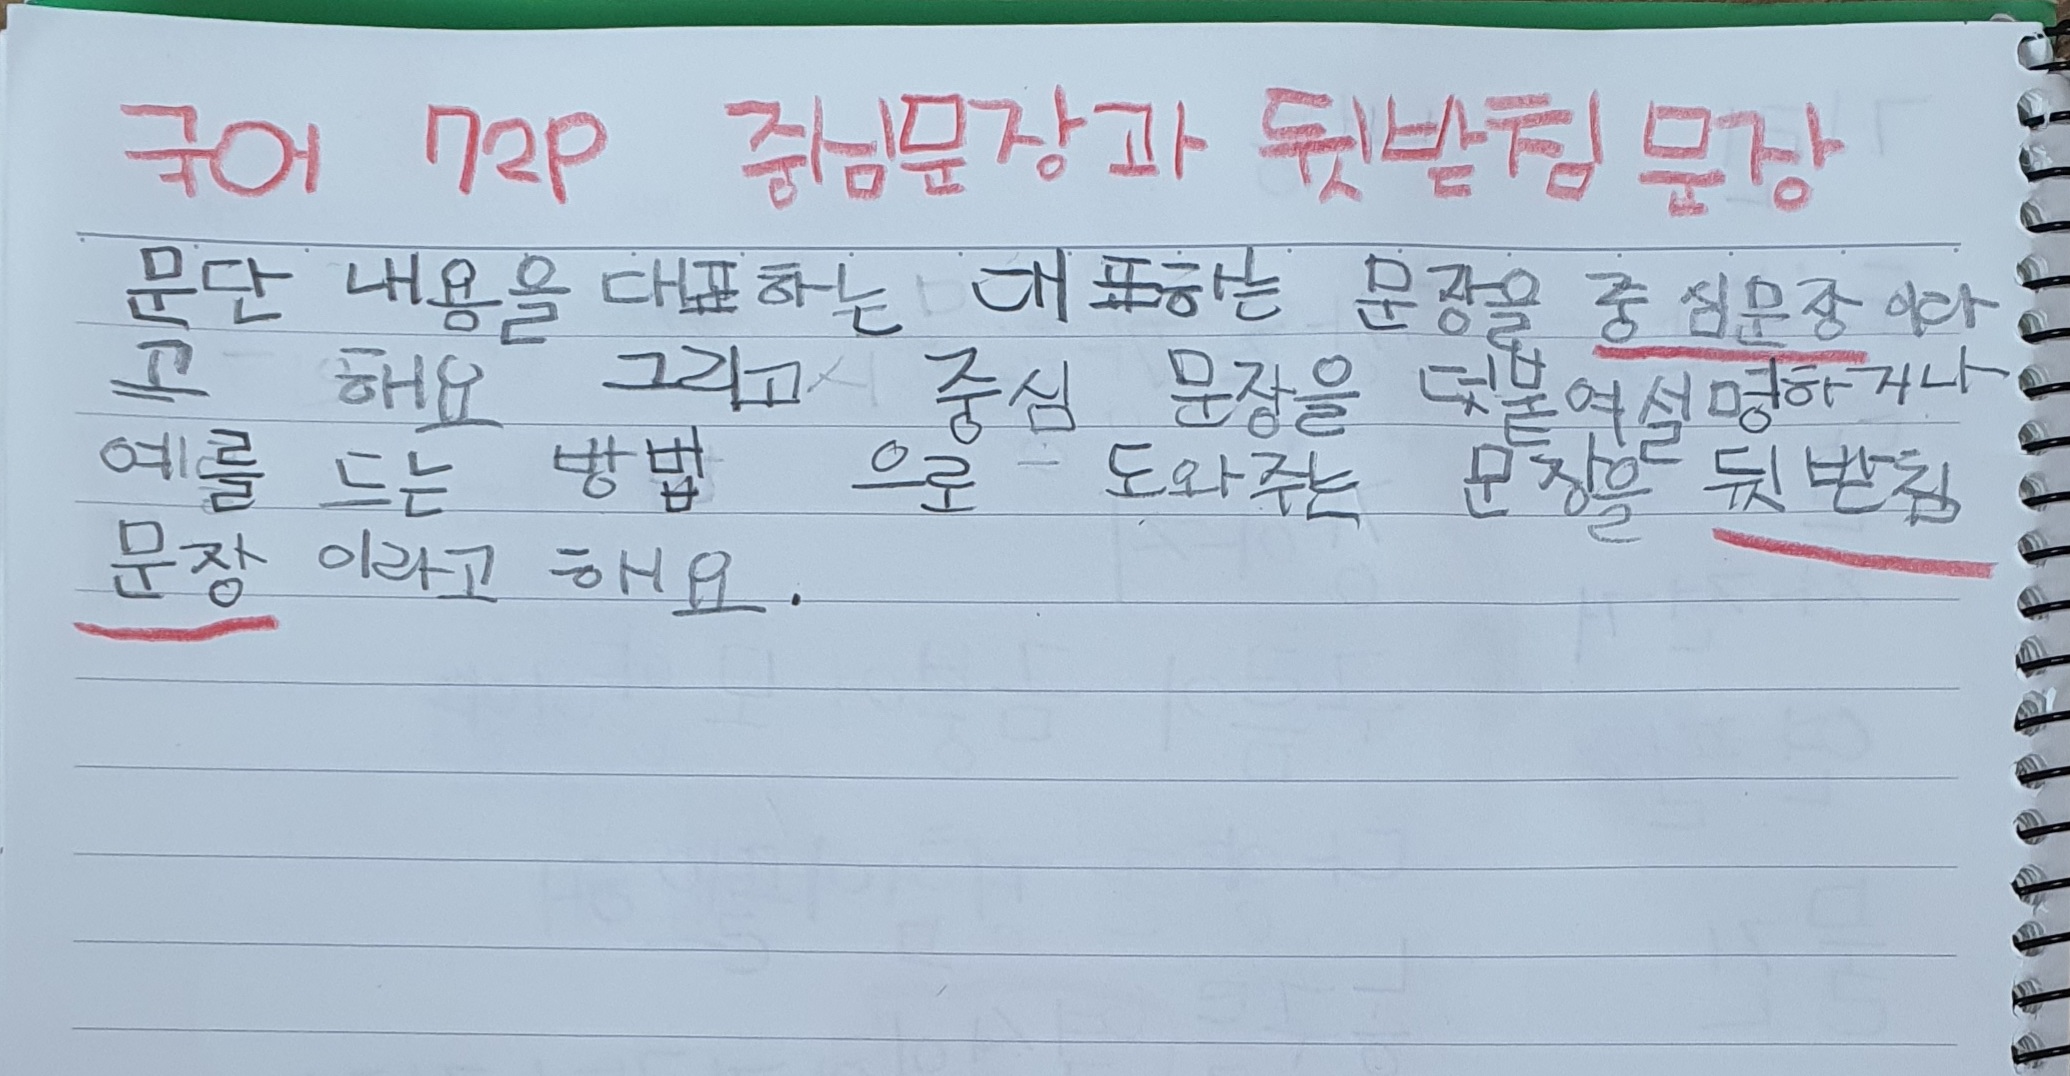 국어 72P 중심문장과 뒷받침 문장
문단 내용을 대표하는 대표하는 문장을 중심문장 이다
고 해요 그리고 중심 문장을 덧붙여 설명하거나
예를 드는 방법 으로 도와주는 문장을 뒷받침
문장 이라고 해요.